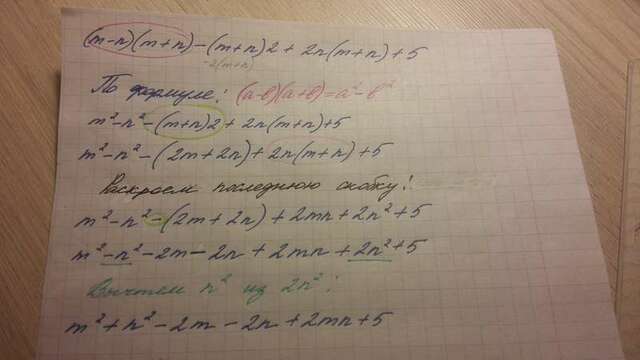 (m-n)(m+n)-(m+n)2+2n(m+n)+5
-2(m+n)
По формуле: (a-b)(a+b)=a²-b²
m²-n²-(m+n)2+2n(m+n)+5
m²-n²-(2m+2n)+2n(m+n)+5
Раскроем последнюю скобку!
m²-n²-(2m+2n)+2mn+2n²+5
m²-n²-2m-2n+2mn+2n²+5
Вычтем n² из 2n²!
m²+n²-2m-2n+2mn+5